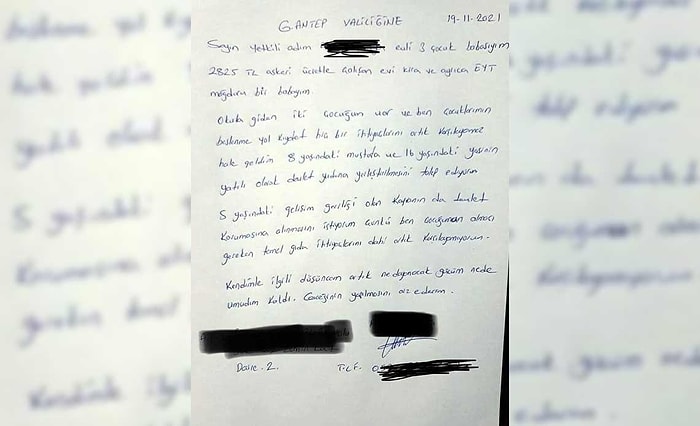 GANTEP VALİLİĞİNE 19-11-2021
Sayın yetkili adım evli 3 çocuk babasıyım
2825 TL askeri ücretle çalışan evi kira ve ayrıca EYT
mağduru bir babayım.
Okula giden iki çocuğum var ve ben çocuklarımın
beslenme yol kıyafet hiç bir ihtiyaçlarını artık karşılayamaz
hale geldim 8 yaşındaki mustafa ve 16 yaşındaki yasinin
yatılı olarak devlet yurduna yerleştirilmesini talep ediyorum
5 yaşındaki gelişim geriliği olan da devlet
korumasına alınmasını istiyorum çünkü ben çocuğumun alması
gereken temel gıda ihtiyaçlarını dahi artık karşılayamıyorum.
Kendimle ilgili düşüncem artık ne yapacak gücüm nede
umudum kaldı. Gereğinin yapılmasını arz ederim.
Daire. 2. TLF. 0